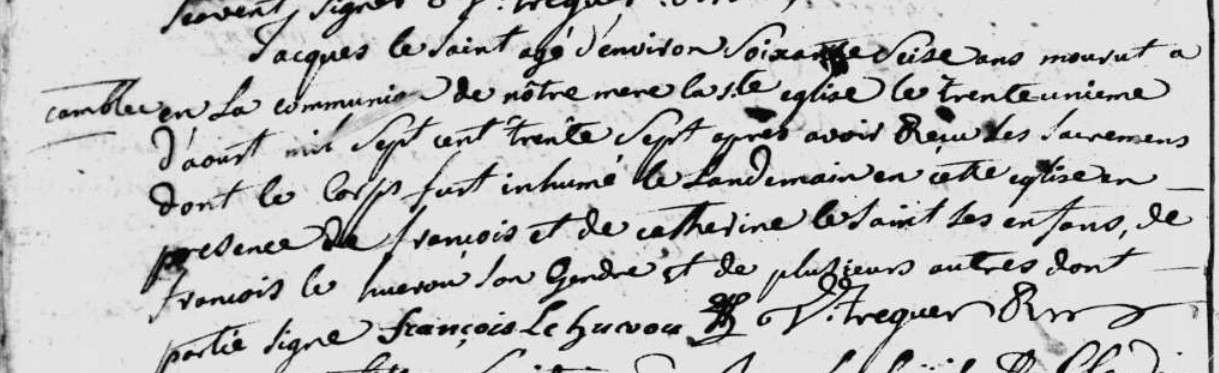 scavent signer
Jacques le Saint agé d'environ Soixante Seise ans mourut a
en La communion de nôtre mere la ste eglise le trenteunieme
d'aoust mil Sept cent trente Sept apres avoir Reçu les Sacremens
dont le Corps fut inhumé le Landemain en cette eglise en
presence de françois et de catherine le Saint ses enfans, de
françois le huerou son Gendre et de plusieurs autres dont
partie signe françois Le huerou V: treguer